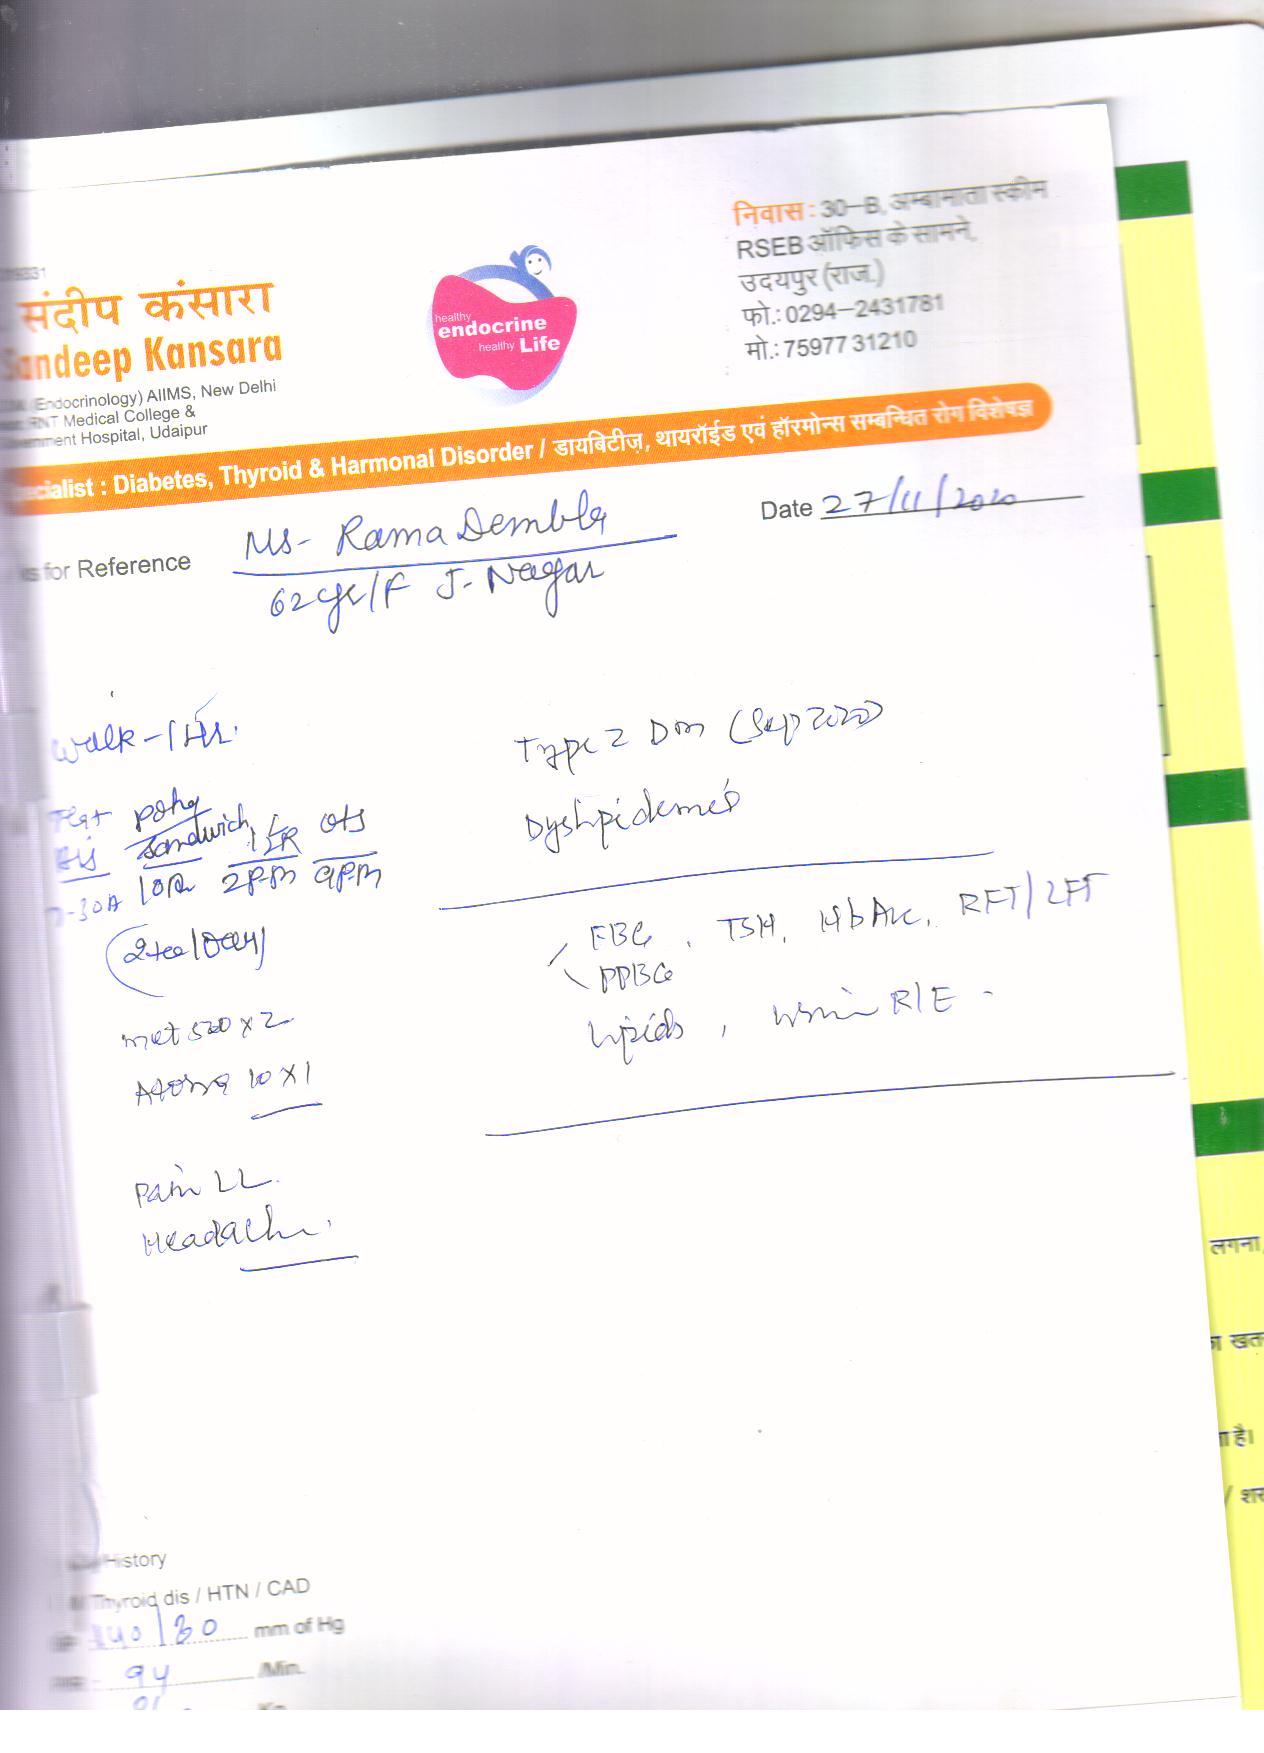 संदीप कंसारा
Sandeep Kansara
(Endocrinology) AIIMS, New Delhi
RNT Medical College &
Hospital, Udaipur
healthy
endocrine
healthy Life
निवास : 30-B, अम्बामाता स्कीम
RSEB ऑफिस के सामने,
उदयपुर (राज.)
फो.: 0294-2431781
मो.: 75977 31210
: Diabetes, Thyroid & Harmonal Disorder / डायबिटीज़, थायरॉईड एवं हॉरमोन्स सम्बन्धित रोग विशेषज्ञ
Date 27/11/2020
for Reference
Ms- Rama Dembla
62 yr/F J-Nagar
Walk - 1 Hr.
poha
sandwich
10A 2PM 9PM
7-30A
met 500 x 2
10 x 1
Pain LL.
Headache.
Type 2 Dm (Sep 2020)
FBG, TSH, HbA1c, RFT/LFT
PPBG
Lipids, R/E -
History
Thyroid dis / HTN / CAD
140/80 mm of Hg
94 /Min.
लगना,
है।